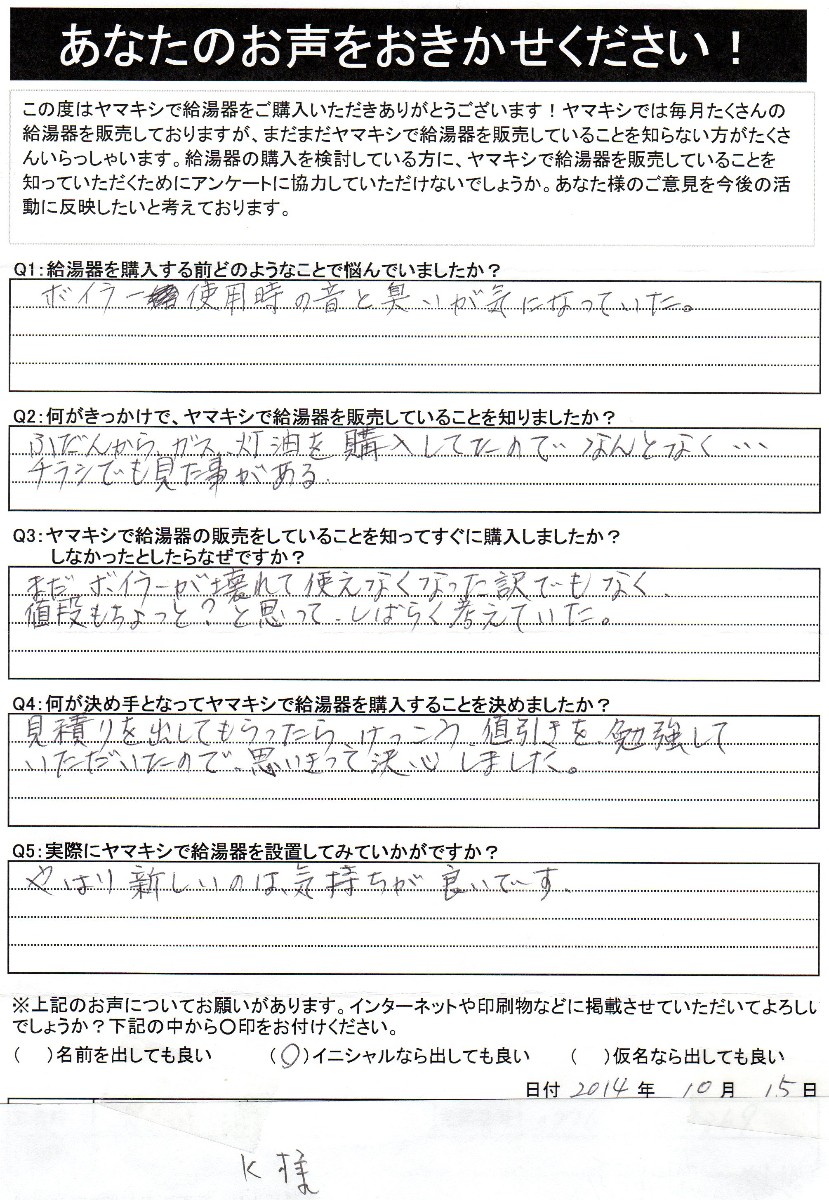 あなたのお声をおきかせください！
この度はヤマキシで給湯器をご購入いただきありがとうございます！ヤマキシでは毎月たくさんの
給湯器を販売しておりますが、まだまだヤマキシで給湯器を販売していることを知らない方がたくさ
んいらっしゃいます。給湯器の購入を検討している方に、ヤマキシで給湯器を販売していることを
知っていただくためにアンケートに協力していただけないでしょうか。あなた様のご意見を今後の活
動に反映したいと考えております。
Q1：給湯器を購入する前どのようなことで悩んでいましたか？
ボイラー使用時の音と臭いが気になっていた。
Q2：何がきっかけで、ヤマキシで給湯器を販売していることを知りましたか？
ふだんから、ガス、灯油を購入してたので なんとなく…
チラシでも見た事がある.
Q3：ヤマキシで給湯器の販売をしていることを知ってすぐに購入しましたか？
しなかったとしたらなぜですか？
まだ ボイラーが壊れて使えなくなった訳でもなく、
値段もちょっと？と思って、しばらく考えていた。
Q4：何が決め手となってヤマキシで給湯器を購入することを決めましたか？
見積りを出してもらったら、けっこう、値引きを、勉強して
いただいたので、思いきって決心しました。
Q5：実際にヤマキシで給湯器を設置してみていかがですか？
やはり新しいのは、気持ちが良いです.
※上記のお声についてお願いがあります。インターネットや印刷物などに掲載させていただいてよろしい
でしょうか？下記の中から〇印をお付けください。
（　）名前を出しても良い　（〇）イニシャルなら出しても良い　（　）仮名なら出しても良い
日付 2014 年 10 月 15 日
K 様